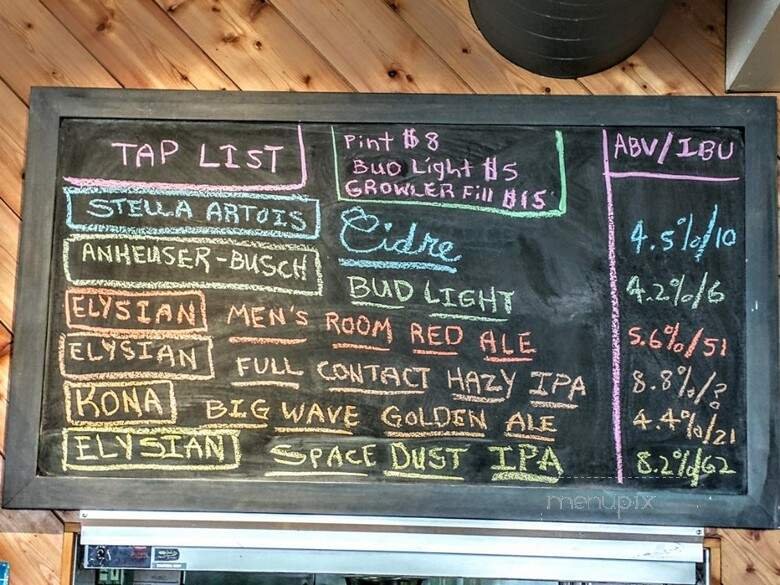 TAP LIST
Pint $8
Bud Light $5
GROWLER Fill $15
ABV/IBU
STELLA ARTOIS Cidre 4.5%/10
ANHEUSER-BUSCH BUD LIGHT 4.2%/6
ELYSIAN MEN'S ROOM RED ALE 5.6%/51
ELYSIAN FULL CONTACT HAZY IPA 8.8%/?
KONA BIG WAVE GOLDEN ALE 4.4%/21
ELYSIAN SPACE DUST IPA 8.2%/62
menupix